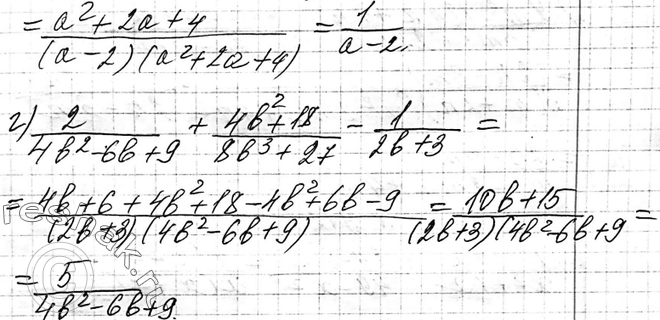 = a² + 2a + 4 / (a - 2)(a² + 2a + 4) = 1 / a - 2.
г) 2 / 4b² - 6b + 9 + 4b² + 18 / 8b³ + 27 - 1 / 2b + 3 =
= 4b + 6 + 4b² + 18 - 4b² + 6b - 9 / (2b + 3)(4b² - 6b + 9) = 10b + 15 / (2b + 3)(4b² - 6b + 9 =
= 5 / 4b² - 6b + 9.
reshak.ru